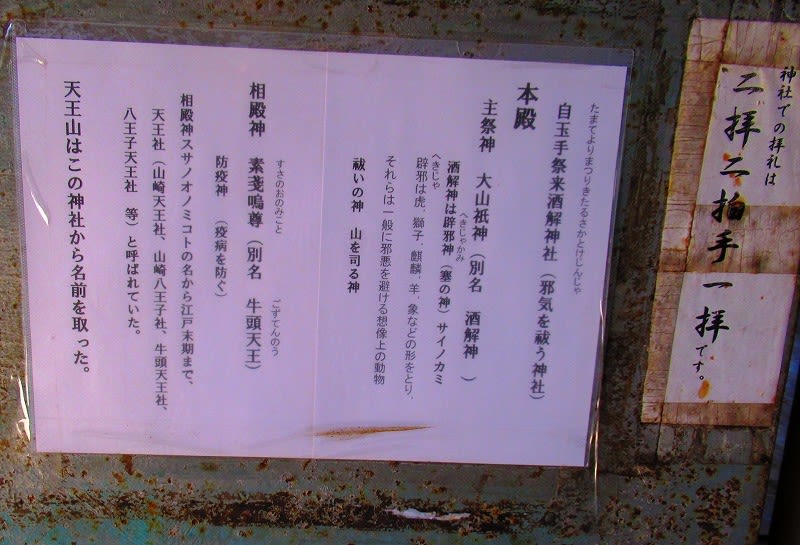 神社での拝礼は
二拝二拍手一拝です。
たまてよりまつりきたるさかとけじんじゃ
自玉手祭来酒解神社（邪気を祓う神社）
本殿
主祭神　大山祇神（別名　酒解神　）
へきじゃかみ
酒解神は辟邪神（塞の神）サイノカミ
へきじゃ
辟邪は虎．獅子．麒麟．羊．象などの形をとり、
それらは一般に邪悪を避ける想像上の動物
祓いの神　山を司る神
すさのおのみこと　ごずてんのう
相殿神　素戔嗚尊（別名　牛頭天王）
防疫神　（疫病を防ぐ）
相殿神スサノオノミコトの名から江戸末期まで、
天王社（山崎天王社、山崎八王子社、牛頭天王社、
八王子天王社　等）と呼ばれていた。
天王山はこの神社から名前を取った。